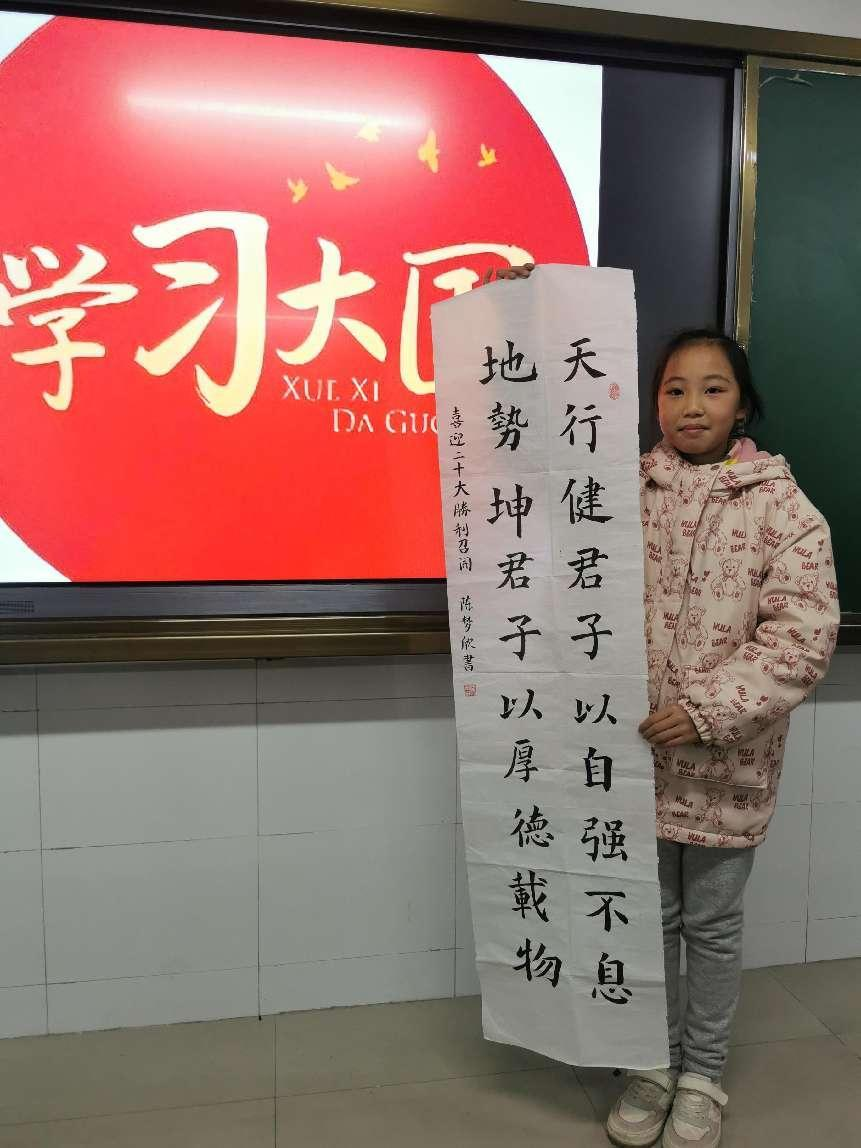 学习大国
XUE XI
DA GUO
天行健君子以自强不息
地勢坤君子以厚德載物
喜迎二十大勝利召開
陈梦欣書
HULA BEAR